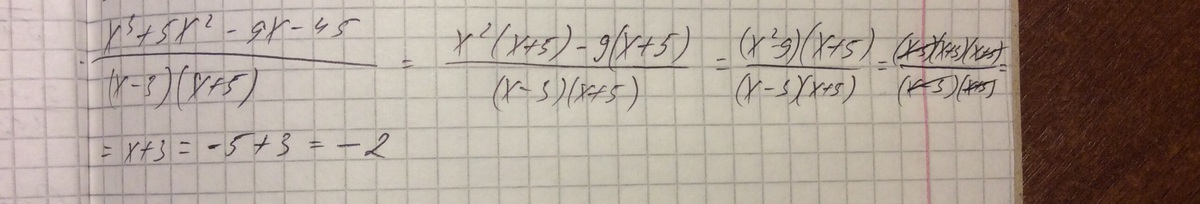 (x³+5x²-9x-45)/((x-3)(x+5)) = (x²(x+5)-9(x+5))/((x-3)(x+5)) = ((x²-9)(x+5))/((x-3)(x+5)) = ((x-3)(x+3)(x+5))/((x-3)(x+5)) =
= x+3 = -5+3 = -2